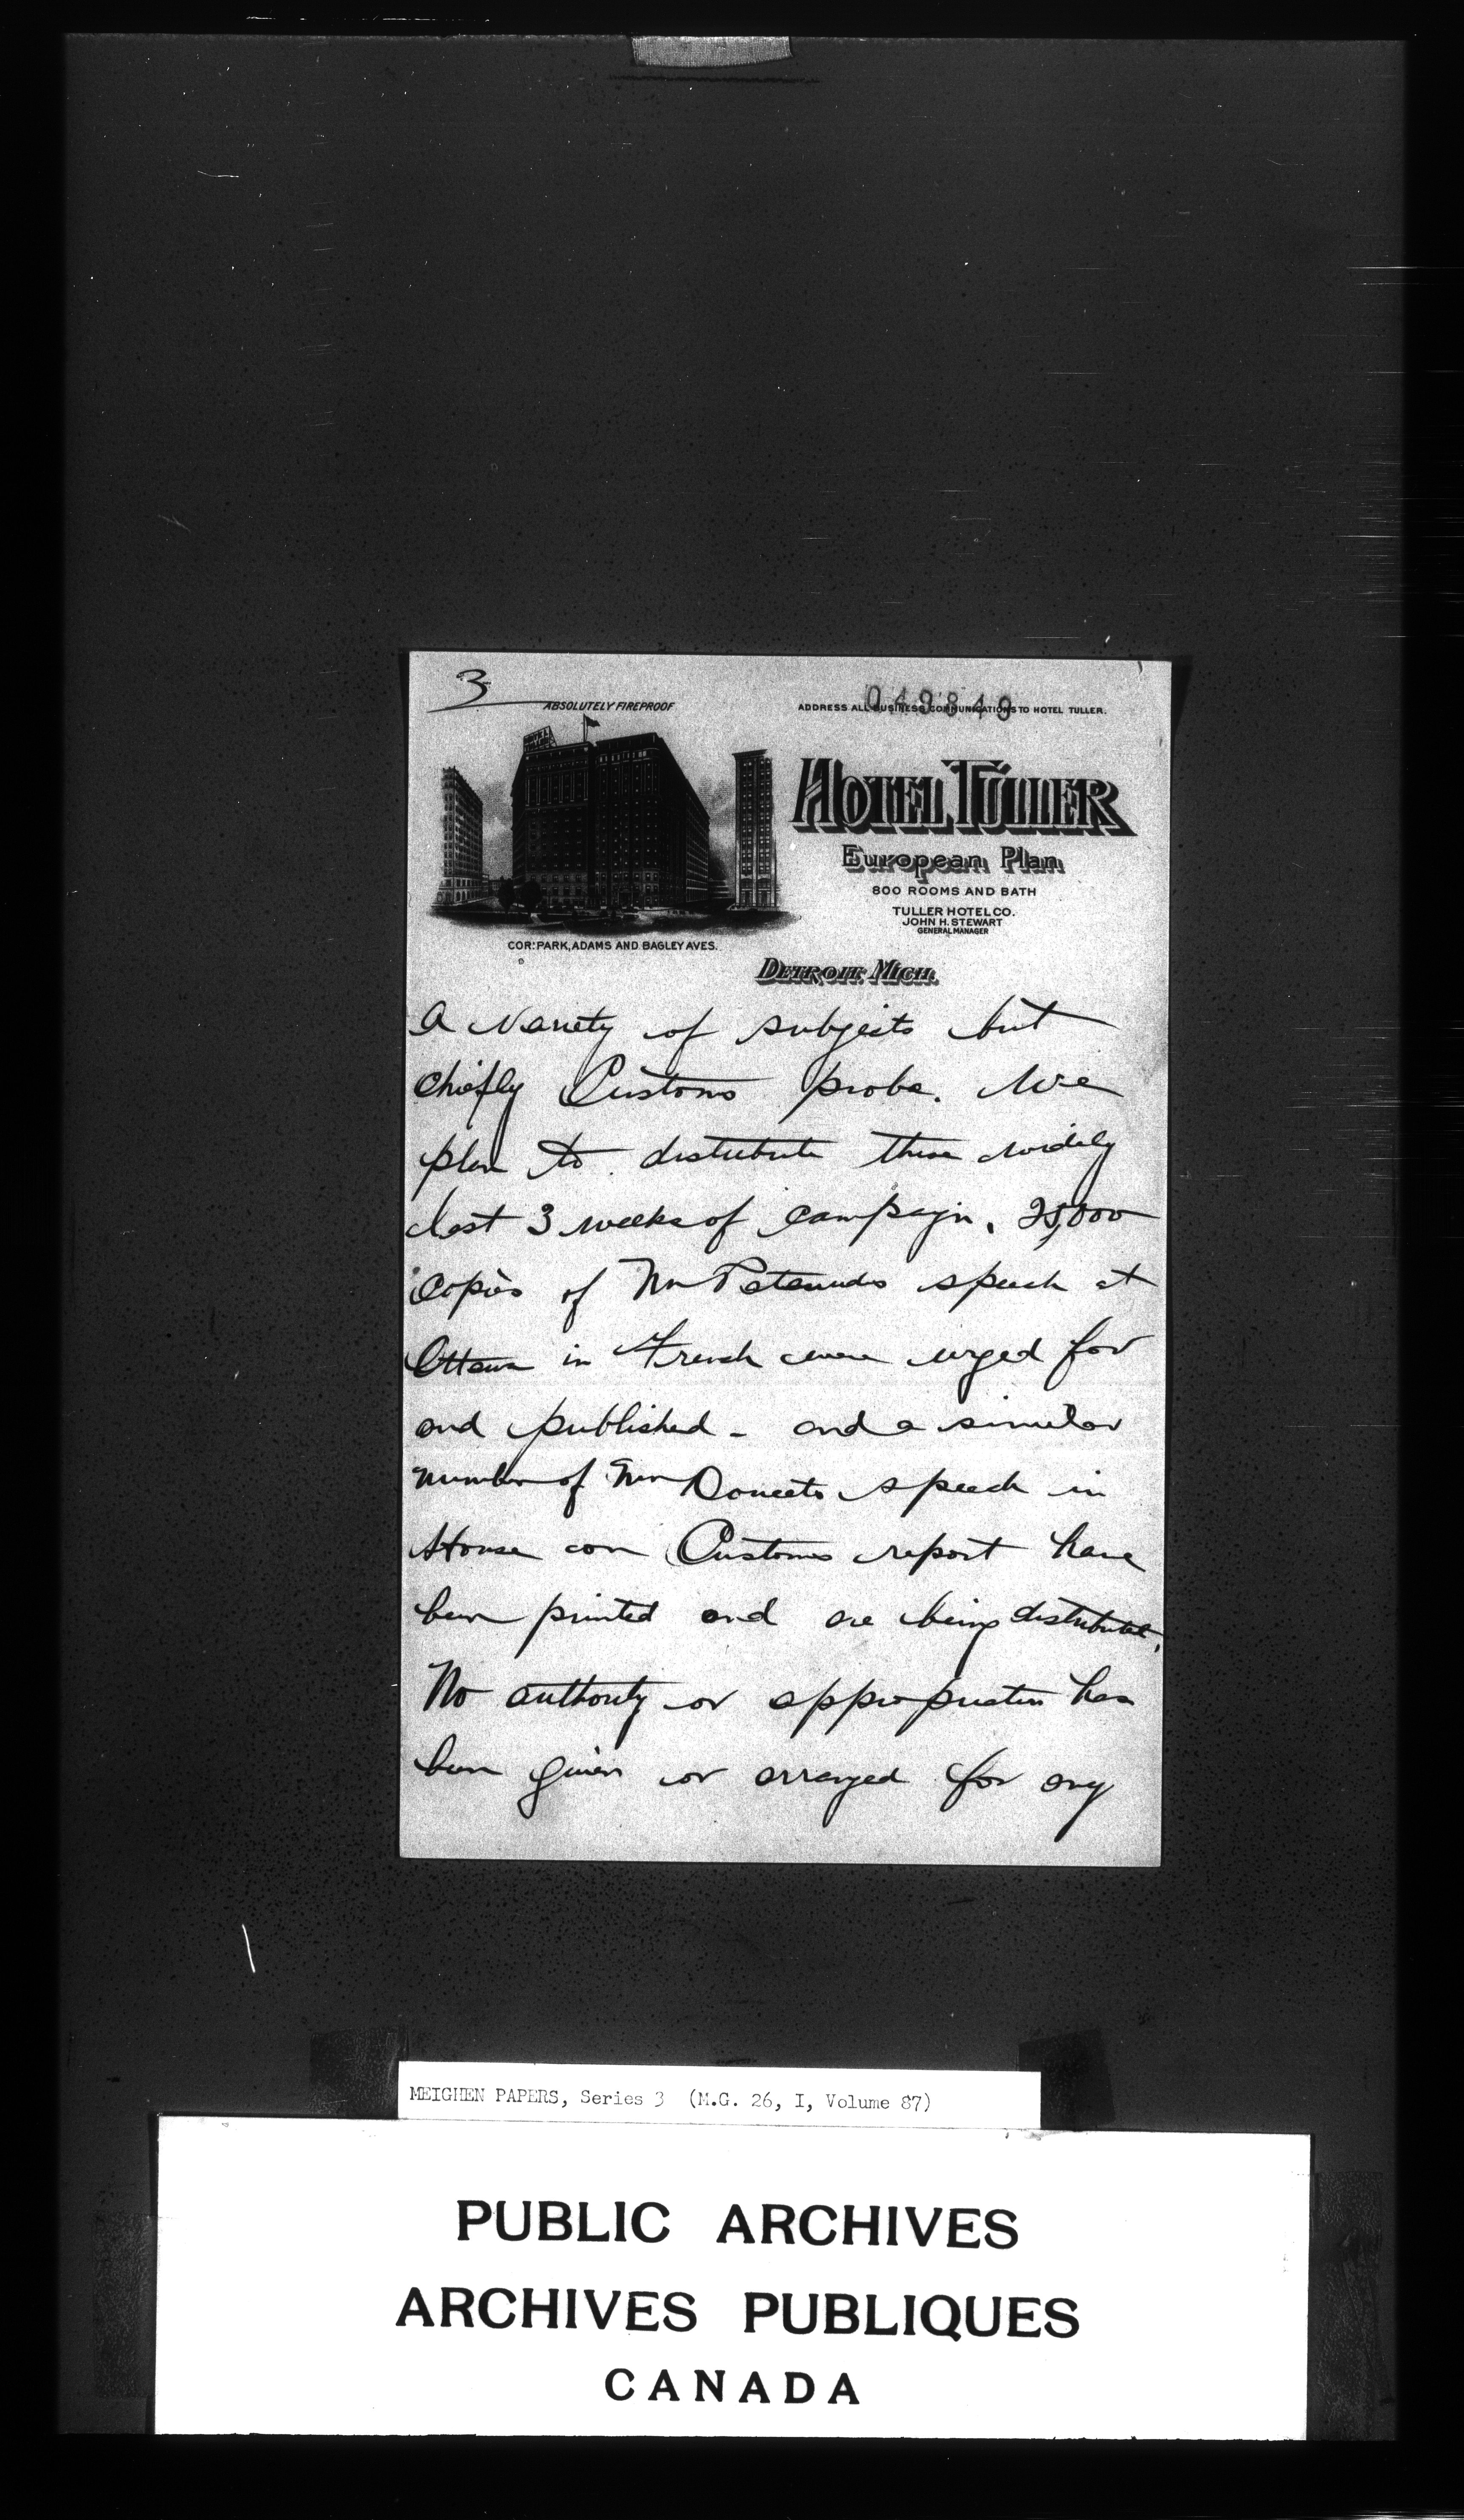 3
049849
ABSOLUTELY FIREPROOF
ADDRESS ALL BUSINESS COMMUNICATIONS TO HOTEL TULLER.
HOTEL TULLER
European Plan
800 ROOMS AND BATH
TULLER HOTEL CO.
JOHN H. STEWART
GENERAL MANAGER
COR. PARK, ADAMS AND BAGLEY AVES.
DETROIT, MICH.
a variety of subjects but
chiefly Customs probe. We
plan to distribute these widely
last 3 weeks of campaign. 25,000
copies of Mr Patenaudes speech at
Ottawa in French were urged for
and published - and a similar
number of Mr Doucets speech in
House on Customs report have
been printed and are being distributed.
No authority or appropriation has
been given or arranged for any
MEIGHEN PAPERS, Series 3 (M.G. 26, I, Volume 87)
PUBLIC ARCHIVES
ARCHIVES PUBLIQUES
CANADA